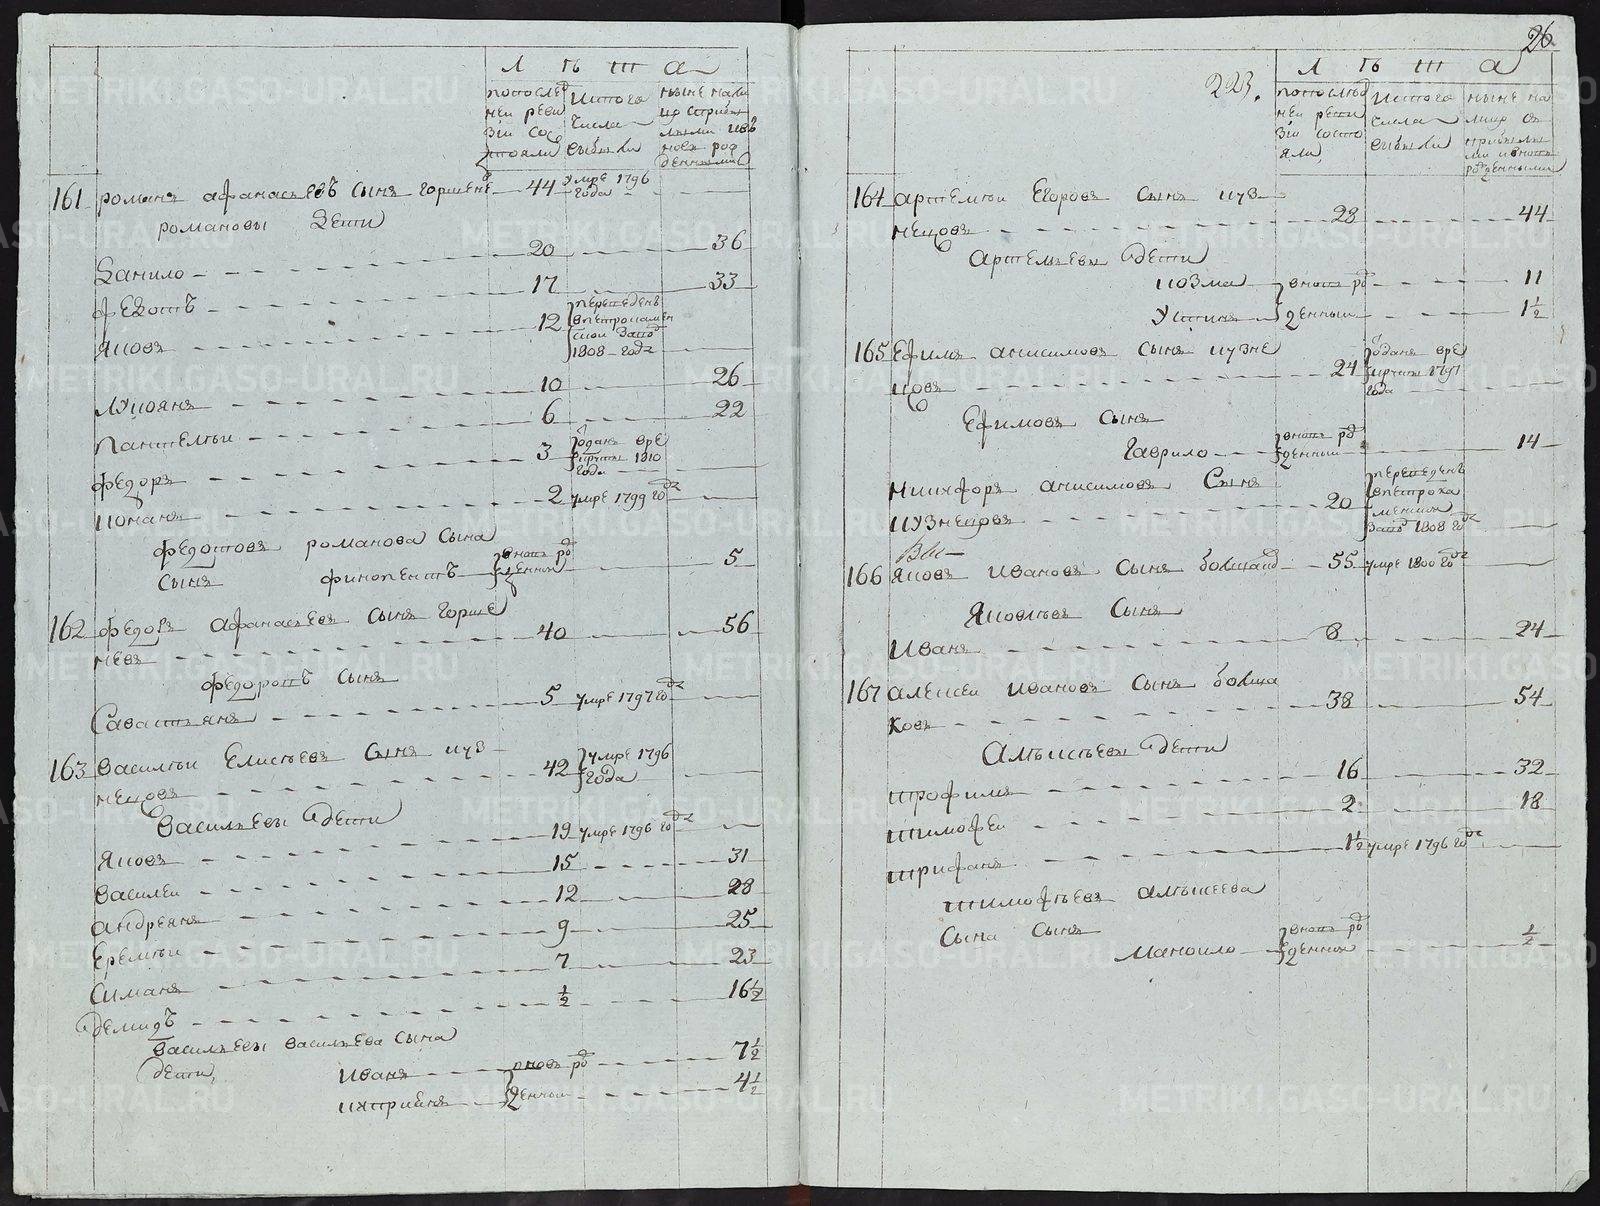 Л ѣ т а
попослед
ней реви
зіи сос
тояли
Изтого
числа
выбыли
ныне нали
цо сприбы
лыми ивъ
новь рож
денными
161 романъ афанасьевъ сынъ горшене 44 умре 1796
года
романовы Дети
Данило 20 36
федотъ 17 33
Яковъ 12 переведенъ
впетрокамен
скои завод
1808 года
Лукоянъ 10 26
пантелѣи 6 22
федоръ 3 Оданъ врек
рукты 1810
года
кононъ 2 умре 1799 года
федотовъ романова сына
сынъ финопентъ вновь рож
денныи 5
162 федоръ афанасьевъ сынъ Горше
невъ 40 56
федоровъ сынъ
Савастьянъ 5 умре 1797 года
163 василѣи Елисѣевъ сынъ куз
нецовъ 42 умре 1796
года
Васильевы дети
Яковъ 19 умре 1796 года
василеи 15 31
андреянъ 12 28
Еремѣи 9 25
Симанъ 7 23
демидъ ½ 16½
васильевы васильева сына
дети иванъ вновь рож 7½
денныи 4½
26
223.
Л ѣ т а
попослѣд
ней реви
зіи состо
яли
Изтого
числа
выбыли
ныне на
лицо съ
прибылы
ми ивновь
рожденными
164 артемѣи Егоровъ сынъ куз
нецовъ 28 44
артемьевы дети
козма вновь рож 11
Устинъ денныи 1½
165 Ефимъ анисимовъ сынъ кузне
цовъ 24 Оданъ врек
рукты 1797
года
Ефимовъ сынъ
Гаврило вновь рож
денныи 14
никифоръ анисимовъ Сынъ
кузнецовъ 20 переведенъ
впетрока
менския
завод 1808 года
166 Яковъ Ивановъ сынъ болшаков 55 умре 1800 года
Яковлевъ Сынъ
Иванъ 8 24
167 алексеи ивановъ сынъ болша
ковъ 38 54
алѣксѣевы дети
трофимъ 16 32
тимофеи 2 18
трифанъ 1½ умре 1796 года
тимофѣевъ алѣксеева
сына сынъ
маноило вновь рож
денныи ½